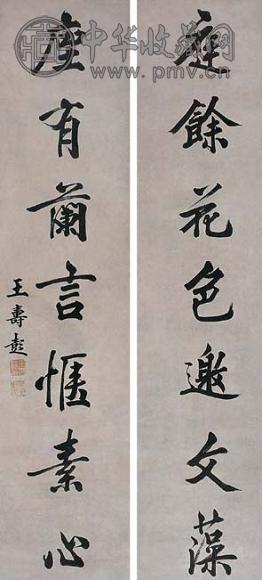 中华收藏网
www.pmv.cn
庭餘花色邀文藻
座有蘭言愜素心
王壽彭